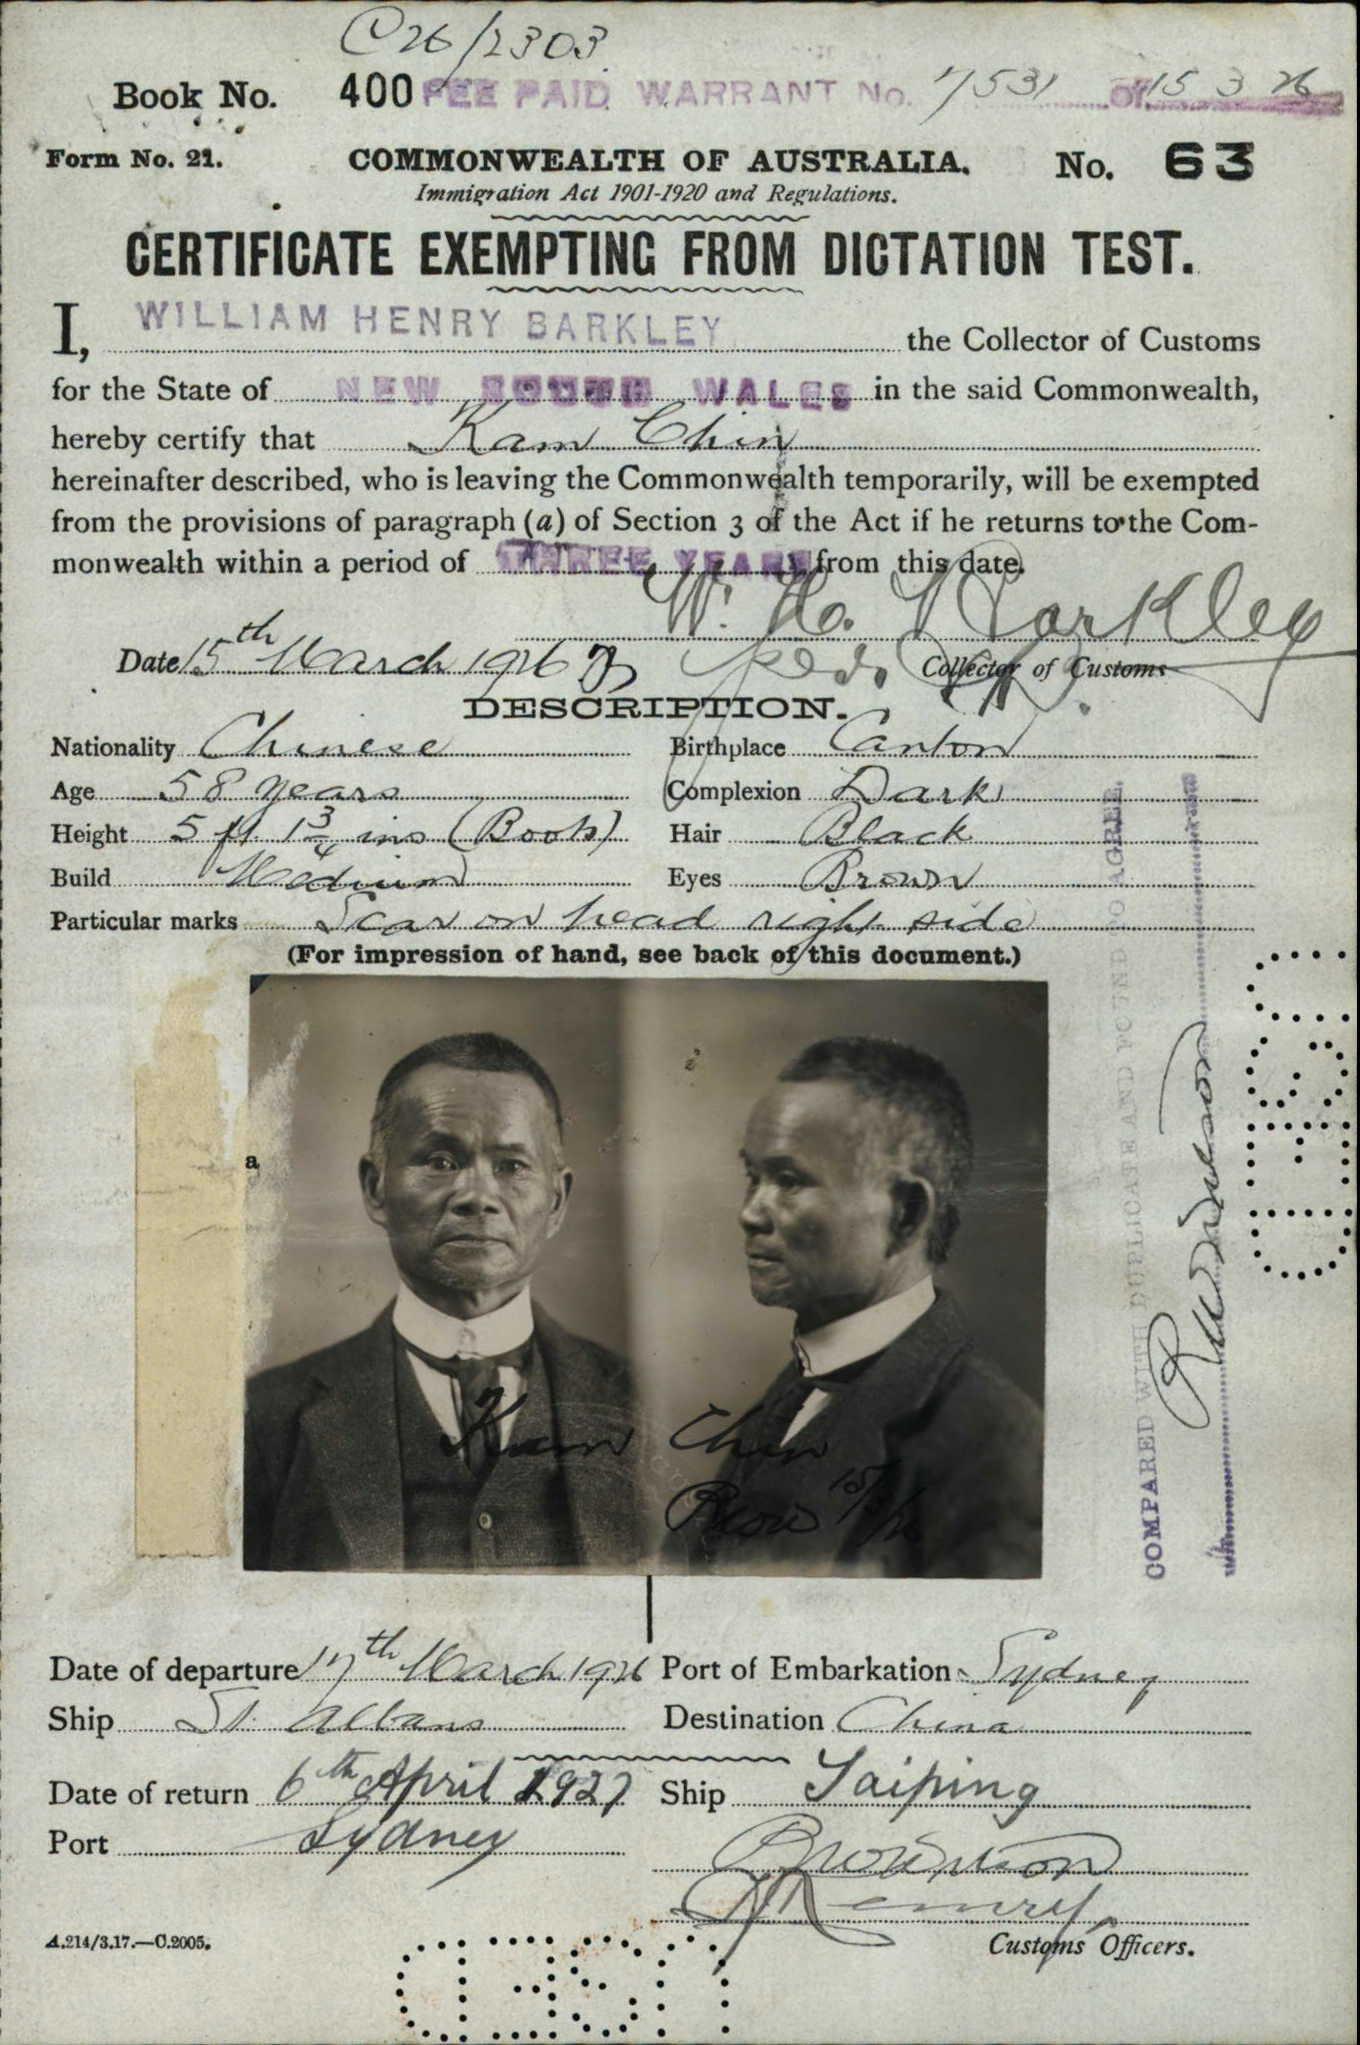 C26/2303
Book No. 400 FEE PAID WARRANT No. 7531 OF 15 3 26
Form No. 21. COMMONWEALTH OF AUSTRALIA. No. 63
Immigration Act 1901-1920 and Regulations.
CERTIFICATE EXEMPTING FROM DICTATION TEST.
I, WILLIAM HENRY BARKLEY the Collector of Customs
for the State of NEW SOUTH WALES in the said Commonwealth,
hereby certify that Kam Chin
hereinafter described, who is leaving the Commonwealth temporarily, will be exempted
from the provisions of paragraph (a) of Section 3 of the Act if he returns to the Com-
monwealth within a period of THREE YEARS from this date.
W. H. Barkley
Date 15th March 1926 Collector of Customs
DESCRIPTION.
Nationality Chinese Birthplace Canton
Age 58 years Complexion Dark
Height 5 ft 1 3/4 ins (Boots) Hair Black
Build Medium Eyes Brown
Particular marks Scar on head right side
(For impression of hand, see back of this document.)
a
Kam Chin
15/3/26
COMPARED WITH DUPLICATE AND FOUND TO AGREE.
Date of departure 17th March 1926 Port of Embarkation Sydney
Ship St. Albans Destination China
Date of return 6th April 1927 Ship Taiping
Port Sydney
A.214/3.17.—C.2005. Customs Officers.